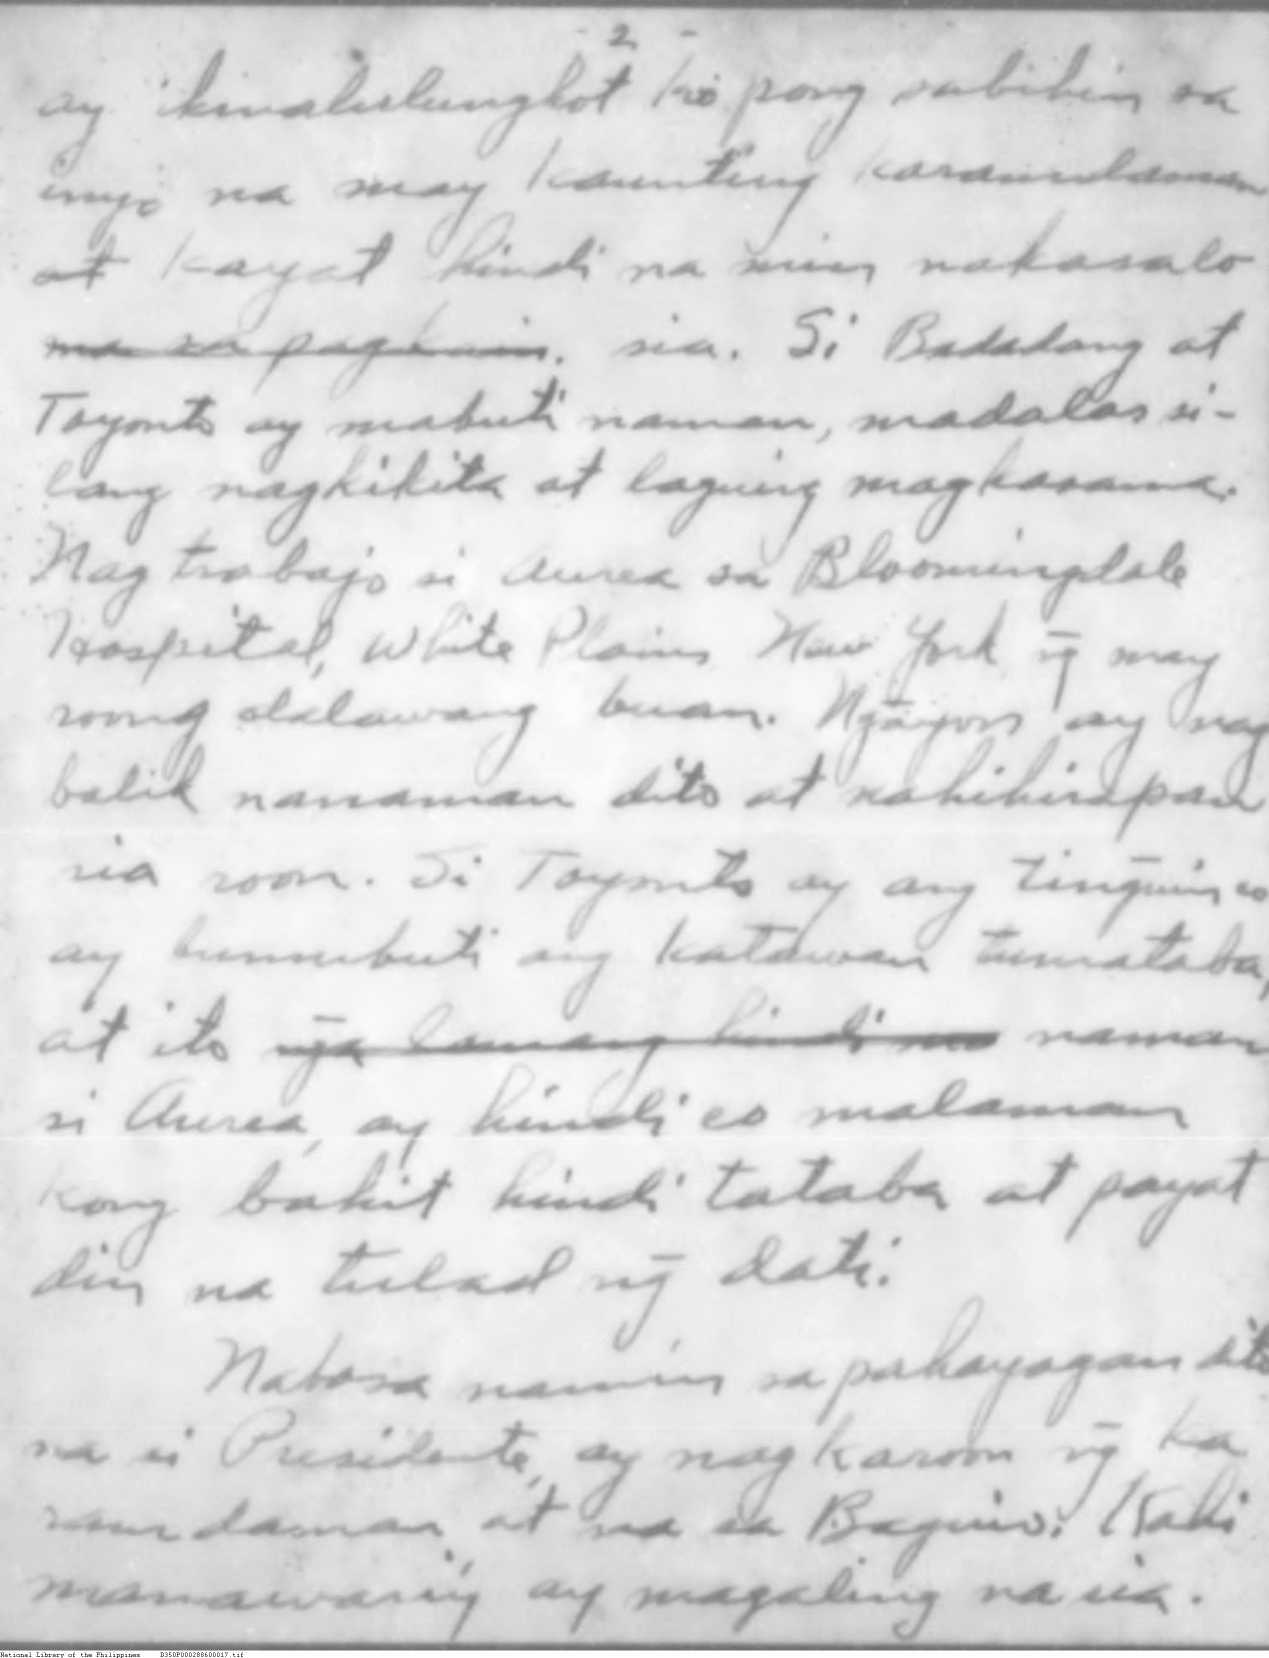 - 2 -
ay ikinalulungkot ko pong sabihin sa
inyo na may kaunting karamdaman
at kayat hindi na min nakasalo
na sa pagkain. sia. Si Badadang at
Toyonto ay mabuti naman, madalas si-
lang nagkikita at laguing magkasama.
Nag trabajo si Aurea sa Bloomingdale
Hospital, White Plains New York ng̃ may
roong dalawang buan. Ng̃ayon ay nag
balik nanaman dito at nahihirapan
sia roon. Si Toyonto ay ang ting̃uin co
ay bumubuti ang katawan tumataba,
at ito ng̃a lamang hindi na naman
si Aurea, ay hindi co malaman
kong bakit hindi tataba at payat
din na tulad ng̃ dati.
Nabasa namin sa pahayagan dito
na si Presidente, ay nagkaroon ng̃ ka
ramdaman at na sa Baguio. Kahi
manawari'y ay magaling na sia.
National Library of the Philippines D350P000288600017.tif